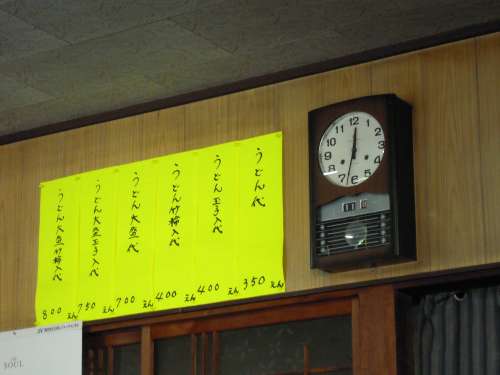 うどん代
350えん
うどん玉子入代
400えん
うどん竹輪入代
400えん
うどん大盛代
700えん
うどん大盛玉子入代
750えん
うどん大盛竹輪入代
800えん
12
1
2
3
4
5
6
7
8
9
10
11
11
SOUL